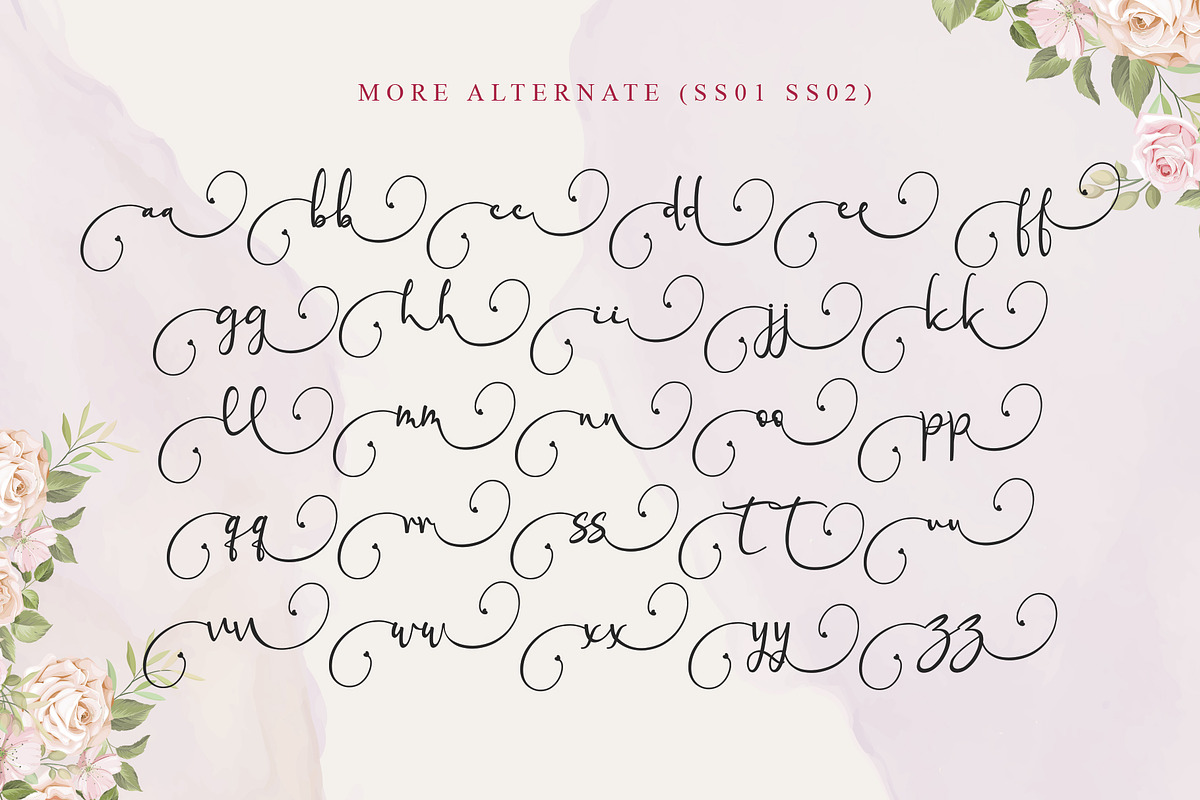 MORE ALTERNATE (SS01 SS02)
aa bb cc dd ee ff
gg hh ii jj kk
ll mm nn oo pp
qq rr ss tt uu
vv ww xx yy zz